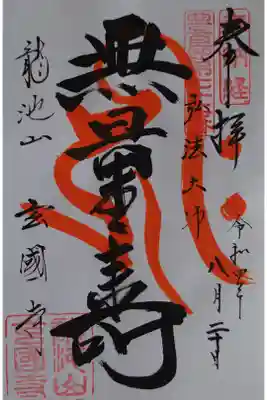 奉拝
弘法大師
令和四年
八月二十日
無量壽
龍池山
玄國寺